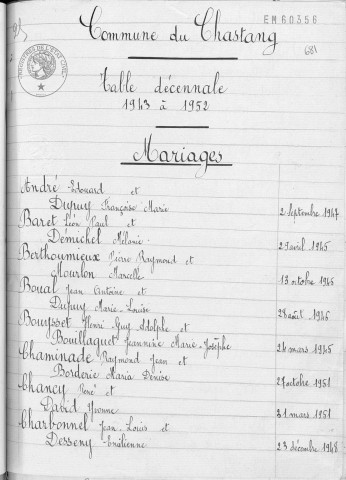 EM60356
Commune du Chastang
681
Table décennale
1943 à 1952
Mariages
André Edouard et
Dupuy Françoise Marie 2 Septembre 1947
Baret Léon Paul et
Démichel Mélanie 29 avril 1946
Berthoumieux Pierre Raymond et
Mourlon Marcelle 13 octobre 1946
Boual Jean Antoine et
Dupuy Marie-Louise 28 août 1946
Bouysset Henri Guy Adolphe et
Bouillaguet Jeannine Marie-Josèphe 26 mars 1946
Chaminade Raymond Jean et
Borderie Maria Denise 27 octobre 1951
Chancy René et
David Yvonne 31 mars 1951
Charbonnel Jean-Louis et
Desseny Emilienne 23 décembre 1948